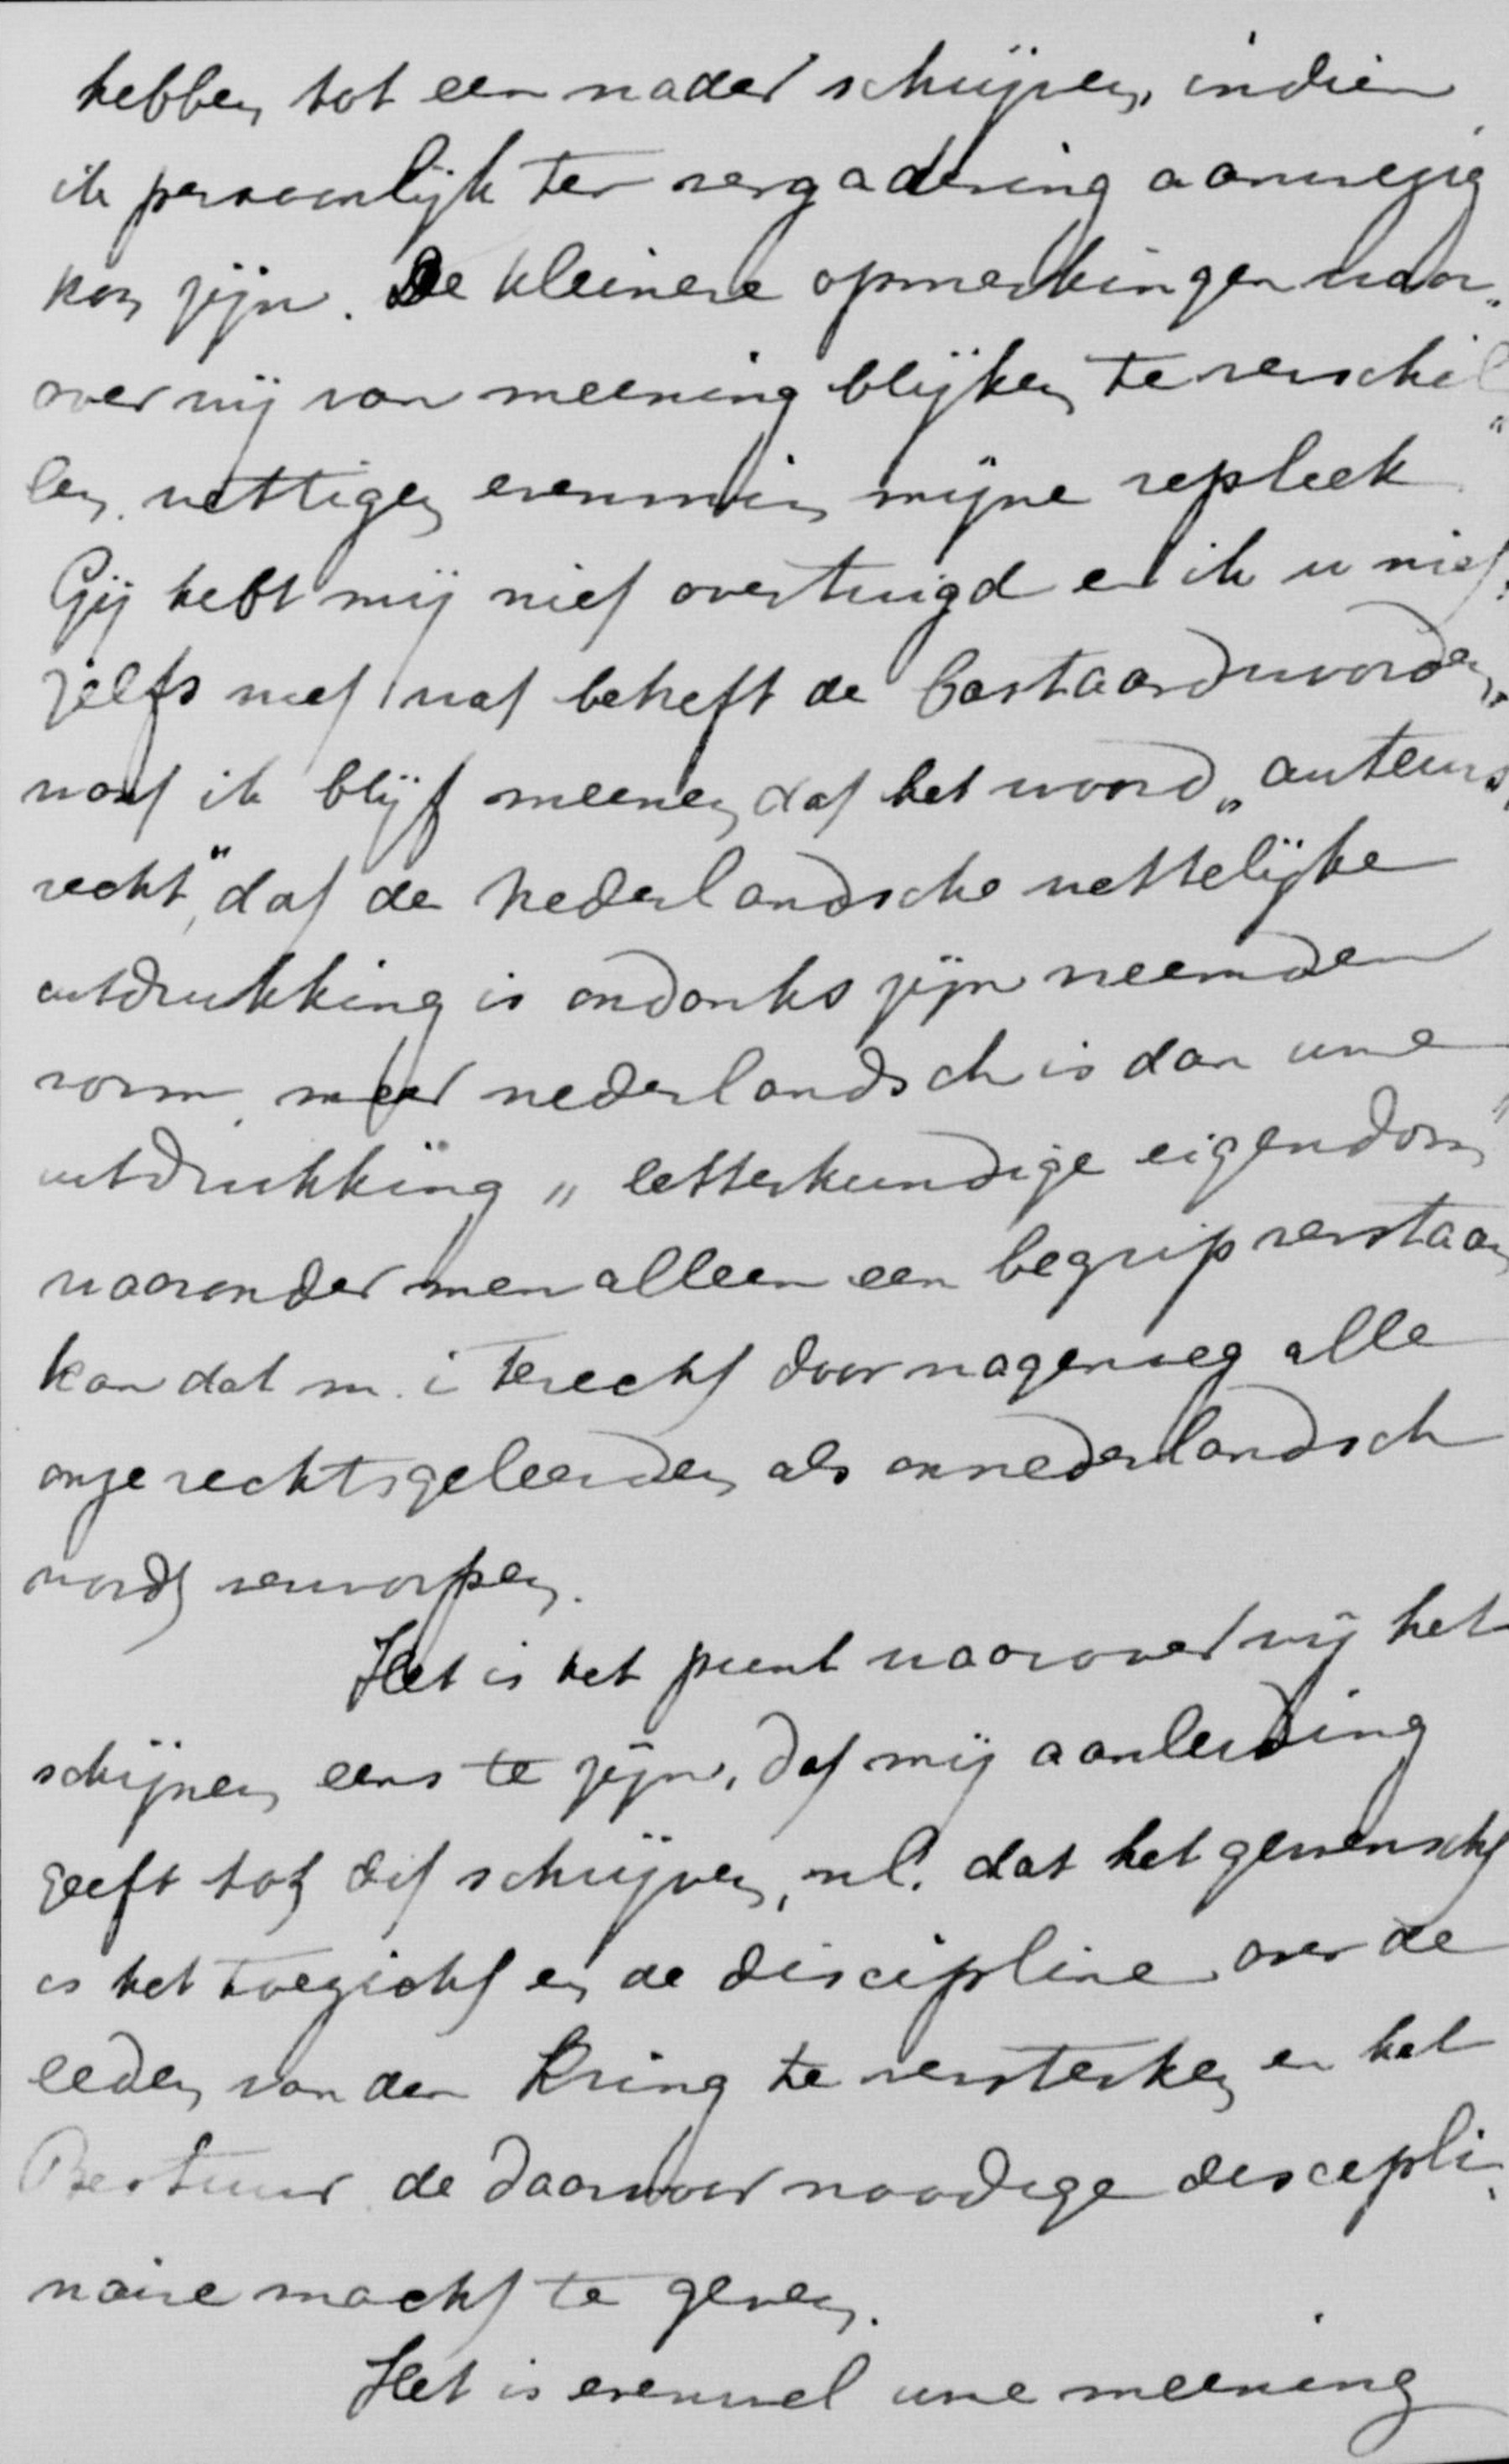 hebben tot een nader schrijven, indien
ik persoonlijk ter vergadering aanwezig
kon zijn. De kleinere opmerkingen waar„
over wij van meening blijken te verschil„
len, wettigen evenmin mijne repliek
Gij hebt mij niet overtuigd en ik u niet:
zelfs niet wat betreft de bastaardwoorden,
want ik blijf meenen dat het woord „auteurs„
recht", dat de Nederlandsche wettelijke
uitdrukking is ondanks zijn vreemden
vorm, meer nederlandsch is dan uwe
uitdrukking „letterkundige eigendom"
waaronder men alleen een begrip verstaan
kan dat m. i terecht door nagenoeg alle
onze rechtsgeleerden als onnederlandsch
wordt verworpen.
Het is het punt waarover wij het
schijnen eens te zijn, dat mij aanleiding
geeft tot dit schrijven, nl. dat het gewenscht
is het toezicht en de discipline over de
leden van den Kring te versterken en het
Bestuur de daarvoor noodige discipli„
naire macht te geven.
Het is evenwel uwe meening